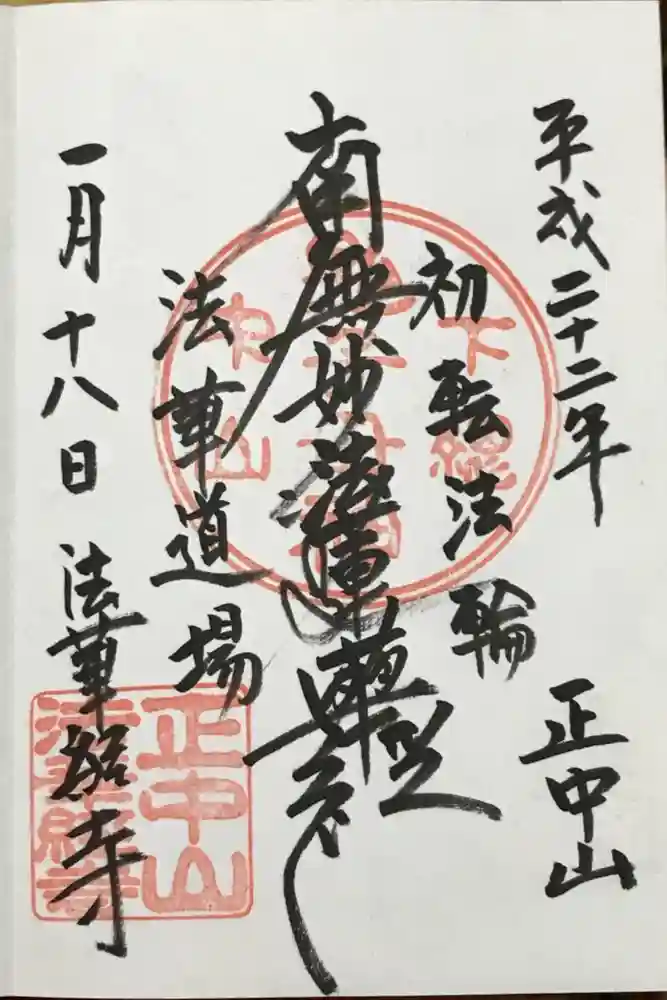 平成二十二年
正中山
初転法輪
南無妙法蓮華経
法華道場
一月十八日
法華経寺
正中山
法華経寺
下総
中山